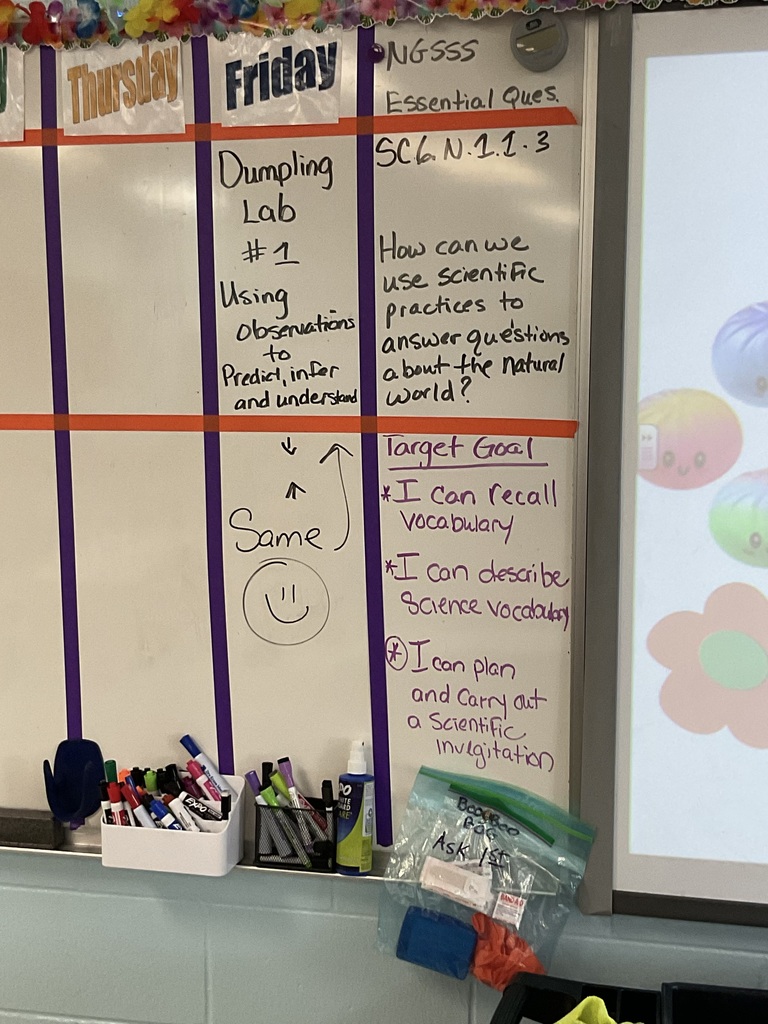 Thursday
Friday
NGSSS
Essential Ques.
Dumpling
Lab
#1
Using
observations
to
Predict, infer
and understand
SC.6.N.1.1.3
How can we
use scientific
practices to
answer questions
about the natural
world?
Same
Target Goal
*I can recall
vocabulary
*I can describe
Science vocabulary
*I can plan
and Carry out
a Scientific
Invegitation
EXPO
Booboo
Bag
Ask 1st